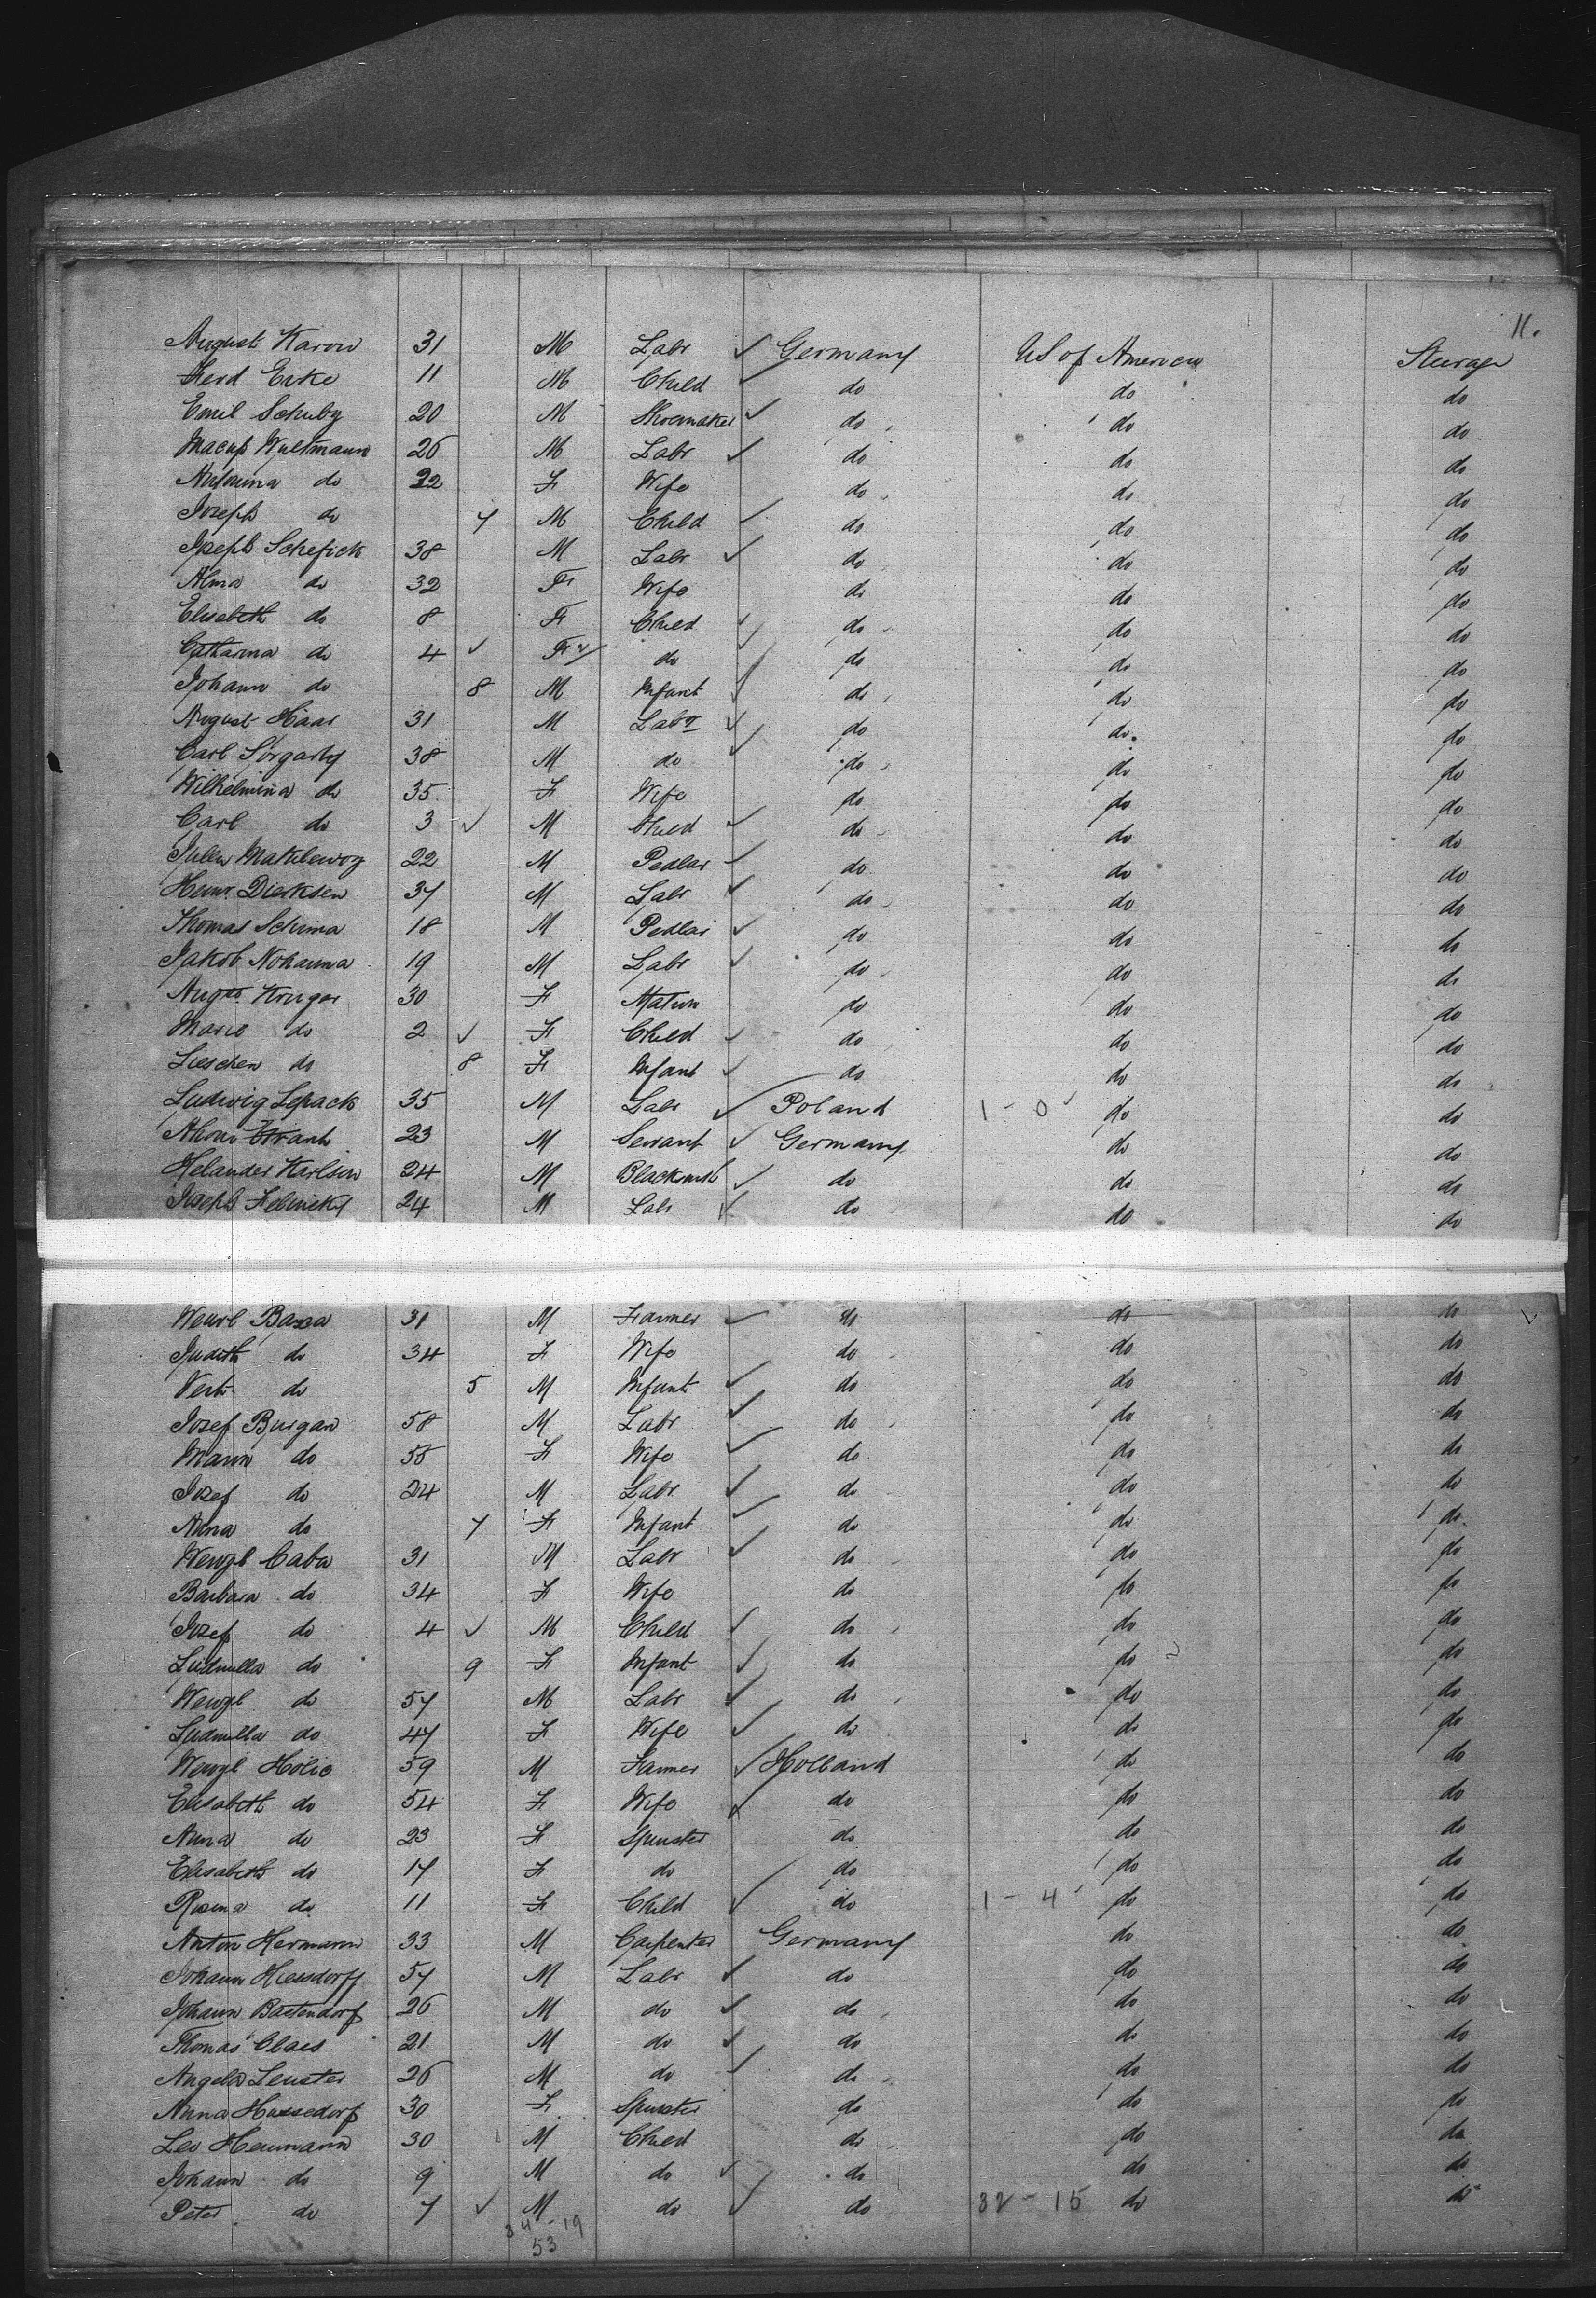 11.
August Karow 31 M Labr ✓ Germany US of America Steerage
Ferd Erke 11 M Child ✓ do do do
Emil Schuby 20 M Shoemaker ✓ do do do
Wultmann 26 M Labr ✓ do do do
Antonina do 22 F Wife do do do
Joseph do 7 M Child ✓ do do do
Joseph Schefick 38 M Labr ✓ do do do
Alma do 32 F Wife do do do
Elisabeth do 8 F Child ✓ do do do
Catharina do 4 ✓ F do ✓ do do do
Johann do 8 M Infant ✓ do do do
August Haar 31 M Labr ✓ do do do
Carl Sorgatty 38 M do ✓ do do do
Wilhelmina do 35 F Wife do do do
Carl do 3 ✓ M Child ✓ do do do
22 M Pedlar ✓ do do do
Heinr. Dierksen 37 M Labr ✓ do do do
Thomas Schima 18 M Pedlar ✓ do do do
Jakob Nohauma 19 M Labr ✓ do do do
Augte. Kruger 30 F Matron do do do
Marie do 2 ✓ F Child ✓ do do do
Lieschen do 8 F Infant ✓ do do do
Ludwig Lepack 35 M Labr ✓ Poland 1 - 0 do do
23 M Servant ✓ Germany do do
Helander Karlson 24 M Blacksmith ✓ do do do
Joseph 24 M Labr ✓ do do do
Baxa 31 M Farmer ✓ do do do
Judith do 34 F Wife do do do
Veit do 5 M Infant ✓ do do do
Jozef Burgan 58 M Labr ✓ do do do
Marin do 58 F Wife ✓ do do do
Jozef do 24 M Labr ✓ do do do
Anna do 7 F Infant ✓ do do do
Wenzl Caba 31 M Labr ✓ do do do
Barbara do 34 F Wife do do do
Jozef do 4 ✓ M Child ✓ do do do
Ludmilla do 9 F Infant ✓ do do do
Wenzl do 57 M Labr ✓ do do do
Ludmilla do 47 F Wife ✓ do do do
Wenzl Holic 59 M Farmer ✓ Holland do do
Elisabeth do 54 F Wife ✓ do do do
Anna do 23 F Spinster do do do
Elisabeth do 17 F do do do do
Rosina do 11 F Child ✓ do 1 - 4 do do
Anton Hermann 33 M Carpenter Germany do do
Johann Hessdorff 57 M Labr ✓ do do do
Johann Bastendorf 26 M do ✓ do do do
Thomas Claes 21 M do ✓ do do do
Angela Leuster 26 M do ✓ do do do
Anna Hassedorf 30 F Spinster do do do
Leo Heumann 30 M Child do do do
Johann do 9 M do ✓ do do do
Peter do 7 ✓ M do ✓ do 32 - 15 do do
34 - 19
53